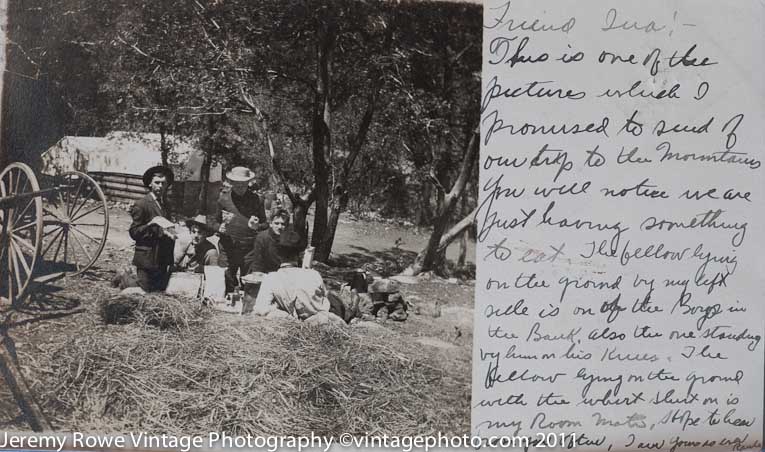 Friend Ina!-
This is one of the
pictures which I
promised to send of
our trip to the Mountains
You will notice we are
just having something
to eat. The fellow lying
on the ground by my left
side is on of the Boys in
the Bank, also the one standing
by him on his Knees. The
fellow lying on the ground
with the whert Shirt on is
my Room Mate, Hope to hear
from you often, I am yours as ever
Jeremy Rowe Vintage Photography ©vintagephoto.com 2011